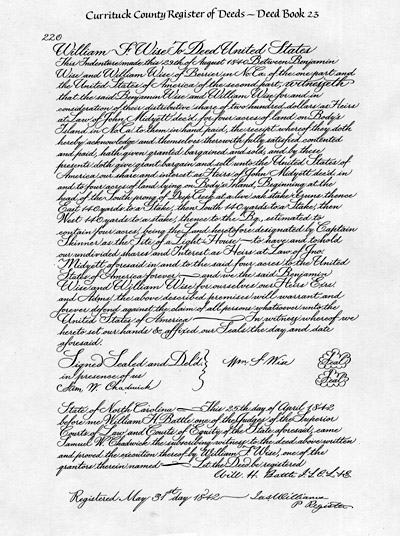 Currituck County Register of Deeds – Deed Book 23
220
William F Wise To Deed United States
This Indenture made this 29th of August 1840 Between Benjamin
Wise and William Wise of in No Ca. of the one part and
the United States of America of the second part, witnesseth
that the said Benjamin Wise and William Wise for and in
consideration of their distributive share of two hundred dollars as Heirs
at Law of John Midyett dec'd. for four acres of land on Body's
Island in No Ca to them in hand paid, the receipt whereof they doth
hereby acknowledge and themselves therewith fully satisfied contented
and paid, hath given granted bargained and sold, and by these
presents doth give grant bargain and sell unto the United States of
America our share and interest as Heirs of John Midyett dec'd. in
and to four acres of land lying on Body's Island, Beginning at the
head of the South prong of Deep Creek at a live oak stake & runs thence
East 440 yards to a Stake, then South 44 yards to a Stake, then
West 440 yards to a stake, thence to the Bg., estimated to
contain four acres, being the Land heretofore designated by Captain
Skinner as the Site of a Light House — to have and to hold
our undivided shares and Interest as Heirs at Law of Jno.
Midyett aforesaid in and to the said four acres to the United
States of America forever — and we the said Benjamin
Wise and William Wise for ourselves our Heirs Exrs.
and Admrs. the above described premises will warrant and
forever defend against the claim of all persons whatsoever unto the
United States of America — In witness whereof we
hereto set our hands & affixed our Seals the day and date
aforesaid.
Signed Sealed and Deld. } Wm F Wise Seal
in presence of us Seal
Sam W Chadwick
State of North Carolina — This 25th day of April 1842
before me William H. Battle one of the Judges of the Superior
Courts of Law and Courts of Equity of the State aforesaid, came
Samuel W. Chadwick the subscribing witness to the deed above written
and proved the execution thereof by William F Wise, one of the
grantors therein named — Let the Deed be registered
Will. H. Battle
Registered May 31st day 1842 — Williams
P Register